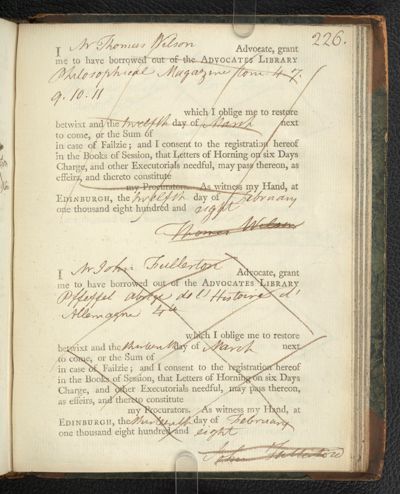 226.
I Mr Thomas Wilson Advocate, grant
me to have borrowed out of the ADVOCATES LIBRARY
Philosophical Magazine tom 4. 7.
9. 10. 11
which I oblige me to restore
betwixt and the twelfth day of March next
to come, or the Sum of
in case of Failzie; and I consent to the registration hereof
in the Books of Session, that Letters of Horning on six Days
Charge, and other Executorials needful, may pass thereon, as
effeirs, and thereto constitute
my Procurators. As witness my Hand, at
EDINBURGH, the twelfth day of February
one thousand eight hundred and eight
Thomas Wilson
I Mr John Fullerton Advocate, grant
me to have borrowed out of the ADVOCATES LIBRARY
Pfeffel abrégé de l'Histoire d'
Allemagne 4to
which I oblige me to restore
betwixt and the thirteenth day of March next
to come, or the Sum of
in case of Failzie; and I consent to the registration hereof
in the Books of Session, that Letters of Horning on six Days
Charge, and other Executorials needful, may pass thereon,
as effeirs, and thereto constitute
my Procurators. As witness my Hand, at
EDINBURGH, the thirteenth day of February
one thousand eight hundred and eight
John Fullerton